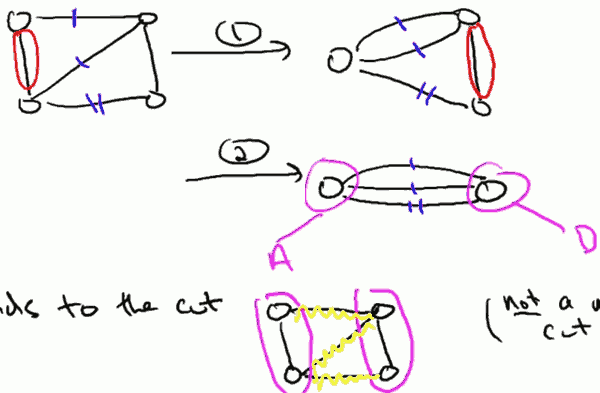 ①
②
A
D
to the cut
(not a
cut